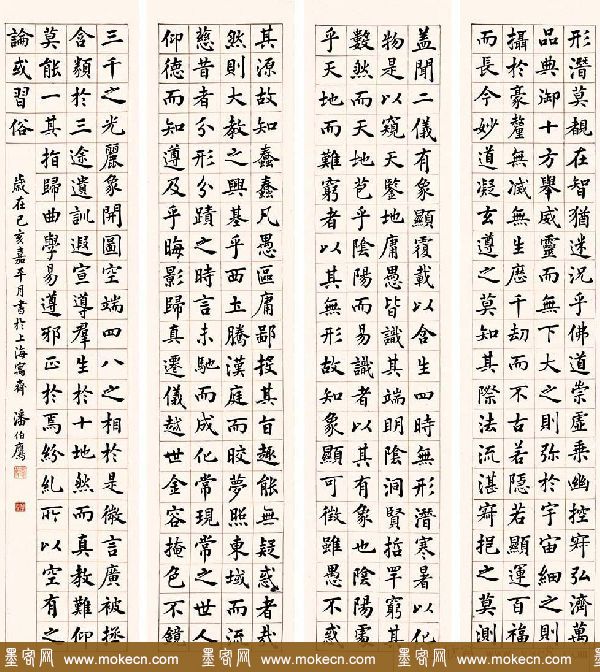 形潛莫覩在智猶迷況乎佛道崇虛乘幽控寂弘濟萬
品典御十方舉威靈而無下大之則弥於宇宙細之
攝於豪釐無滅無生歷千劫而不古若隱若顯運百福
而長今妙道凝玄遵之莫知其際法流湛寂挹之莫測
蓋聞二儀有象顯覆載以含生四時無形潛寒暑以化
物是以窺天鑒地庸愚皆識其端明陰洞賢哲罕窮其
數然而天地苞乎陰陽而易識者以其有象也陰陽處
乎天地而難窮者以其無形故知象顯可徵雖愚不惑
其源故知蠢蠢凡愚區庸鄙投其旨趣能無疑惑者哉
然則大教之興基乎西土騰漢庭而皎夢照東域而流
慈昔者分形分蹟之時言未馳而成化常現常之世人
仰德而知遵及乎晦影歸真遷儀越世金容掩色不鏡
三千之光麗象開圖空端四八之相於是微言廣被拯
含類於三途遺訓遐宣導羣生於十地然而真教難仰
莫能一其指歸曲學易遵邪正於焉紛糺所以空有之
論或習俗
歲在己亥嘉平月書於上海寓齋 潘伯鷹
墨客网 www.mokecn.com 墨客网 www.mokecn.com 墨客网 www.mokecn.com 墨客网 www.mokecn.com